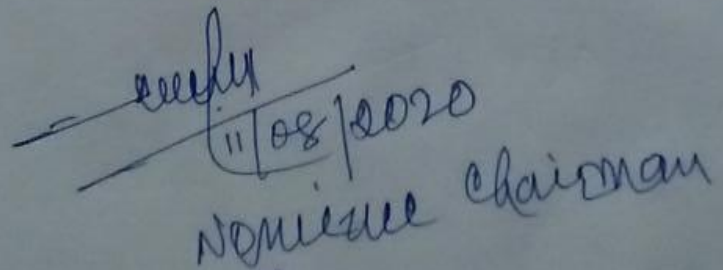 11/08/2020
Nominee Chairman